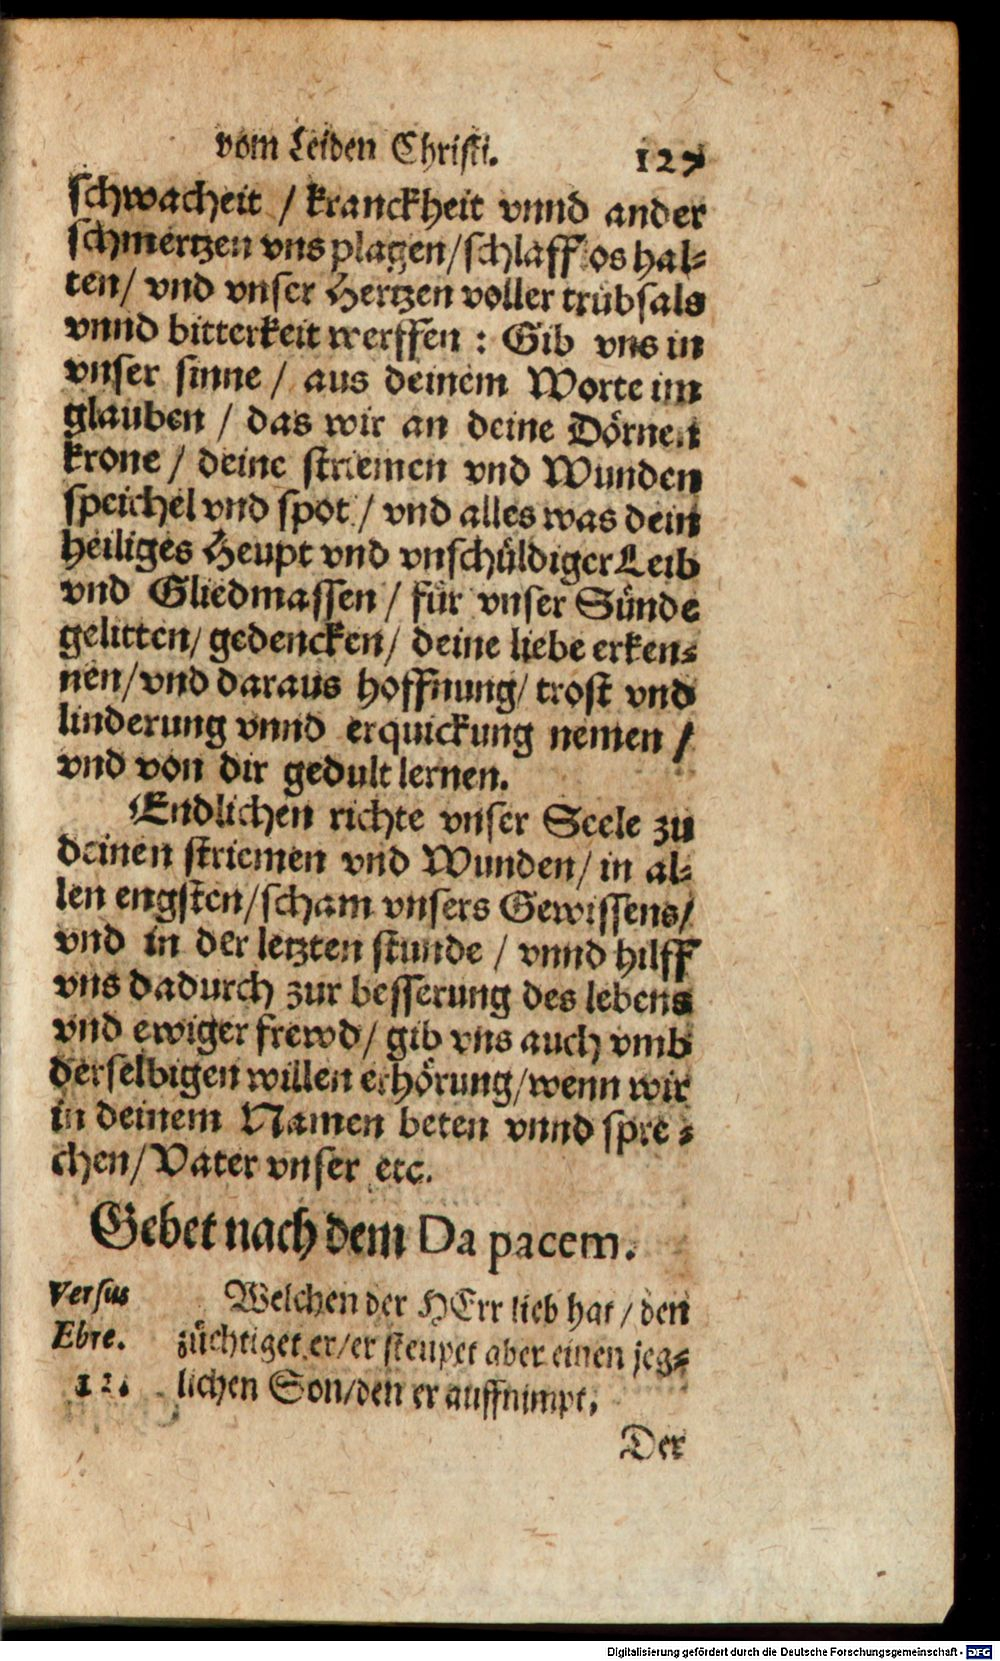 vom Leiden Christi. 127
schwacheit / kranckheit vnnd ander
schmertzen vns plagen/schlafflos hal-
ten/ vnd vnser Hertzen voller trübsals
vnnd bitterkeit werffen : Gib vns in
vnser sinne / aus deinem Worte im
glauben / das wir an deine Dörnen
krone / deine striemen vnd Wunden
speichel vnd spot / vnd alles was dein
heiliges Heupt vnd vnschüldiger Leib
vnd Gliedmassen / für vnser Sünde
gelitten/ gedencken/ deine liebe erken-
nen/vnd daraus hoffnung/ trost vnd
linderung vnnd erquickung nemen /
vnd von dir gedult lernen.
Endlichen richte vnser Seele zu
deinen striemen vnd Wunden/ in al-
len engsten/scham vnsers Gewissens/
vnd in der letzten stunde / vnnd hilff
vns dadurch zur besserung des lebens
vnd ewiger frewd/ gib vns auch vmb
derselbigen willen erhörung/wenn wir
in deinem Namen beten vnnd spre-
chen/Vater vnser etc.
Gebet nach dem Da pacem.
Versus Welchen der HErr lieb hat / den
Ebre. züchtiget er/er steupet aber einen jeg-
12. lichen Son/den er auffnimpt.
Der
Digitalisierung gefördert durch die Deutsche Forschungsgemeinschaft - DFG